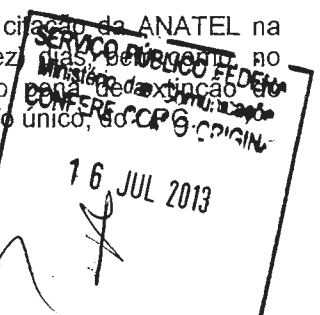 citação da ANATEL na
dias, bem como, no
pena de extinção do
único, do CPC
SERVIÇO PÚBLICO FEDERAL
Ministério das Comunicações
CONFERE COM O ORIGINAL
16 JUL 2013